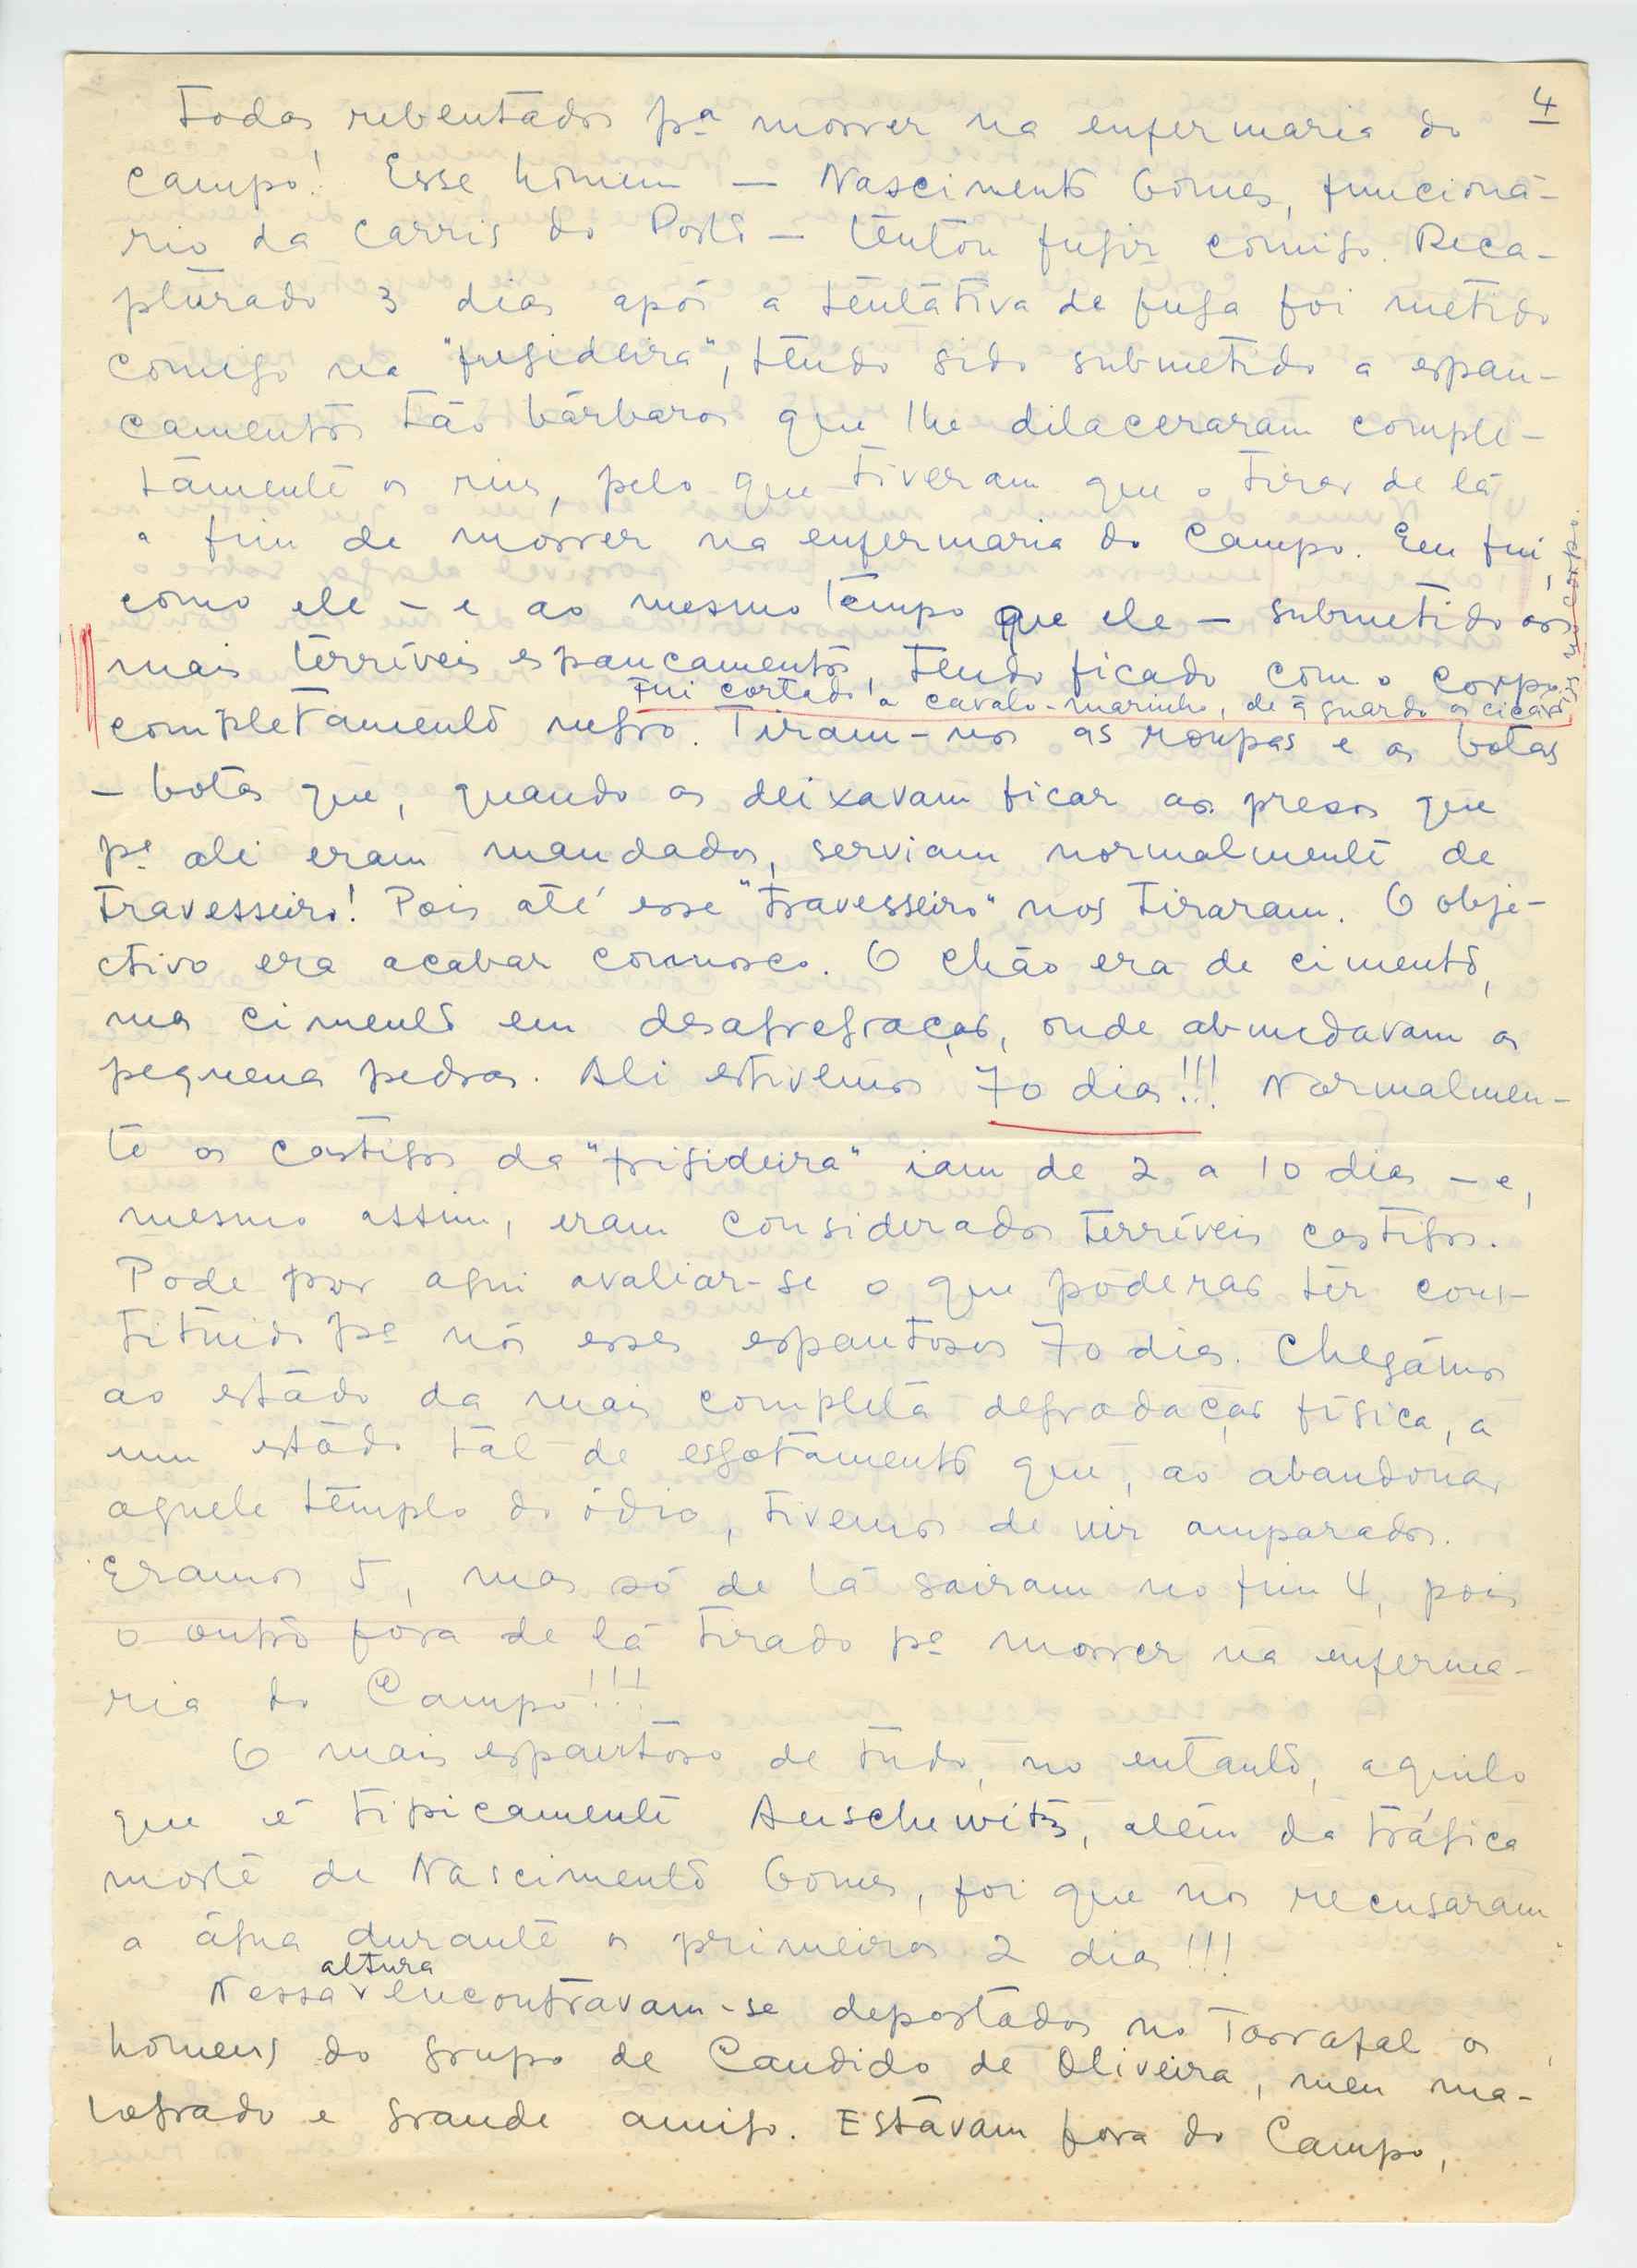 4
todos rebentados pª morrer na enfermaria do
campo! Esse homem — Nascimento Gomes, funcioná-
rio da Carris do Porto — tentou fugir comigo. Reca-
pturado 3 dias após a tentativa de fuga foi metido
comigo na "frigideira", tendo sido submetido a espan-
camentos tão bárbaros que lhe dilaceraram comple-
tamente os rins, pelo que tiveram que o tirar de lá
a fim de morrer na enfermaria do Campo. Eu fui,
como ele — e ao mesmo tempo que ele — submetido aos
mais terríveis espancamentos, tendo ficado com o corpo
Fui cortado a cavalo-marinho, de que guardo as cicatrizes no corpo.
completamente negro. Tiram-nos as roupas e as botas
— botas que, quando as deixavam ficar aos presos que
pª ali eram mandados, serviam normalmente de
travesseiro! Pois até esse "travesseiro" nos tiraram. O obje-
ctivo era acabar connosco. O chão era de cimento,
mas cimento em desagregação, onde abundavam as
pequenas pedras. Ali estivemos 70 dias!!! Normalmen-
te os castigos da "frigideira" iam de 2 a 10 dias — e,
mesmo assim, eram considerados terríveis castigos.
Pode por aqui avaliar-se o que poderão ter cons-
tituido pª nós esses espantosos 70 dias. Chegámos
ao estado da mais completa degradação física, a
um estado tal de esgotamento que, ao abandonar
aquele templo do ódio, tivemos de vir amparados.
Eramos 5, mas só de lá sairam no fim 4, pois
o outro fora de lá tirado pª morrer na enferma-
ria do Campo!!!
O mais espantoso de tudo, no entanto, aquilo
que é tipicamente Auschewitz, além da trágica
morte de Nascimento Gomes, foi que nos recusaram
a água durante os primeiros 2 dias!!!
altura
Nessa encontravam-se deportados no Tarrafal os
homens do grupo de Candido de Oliveira, meu ma-
logrado e grande amigo. Estavam fora do Campo,